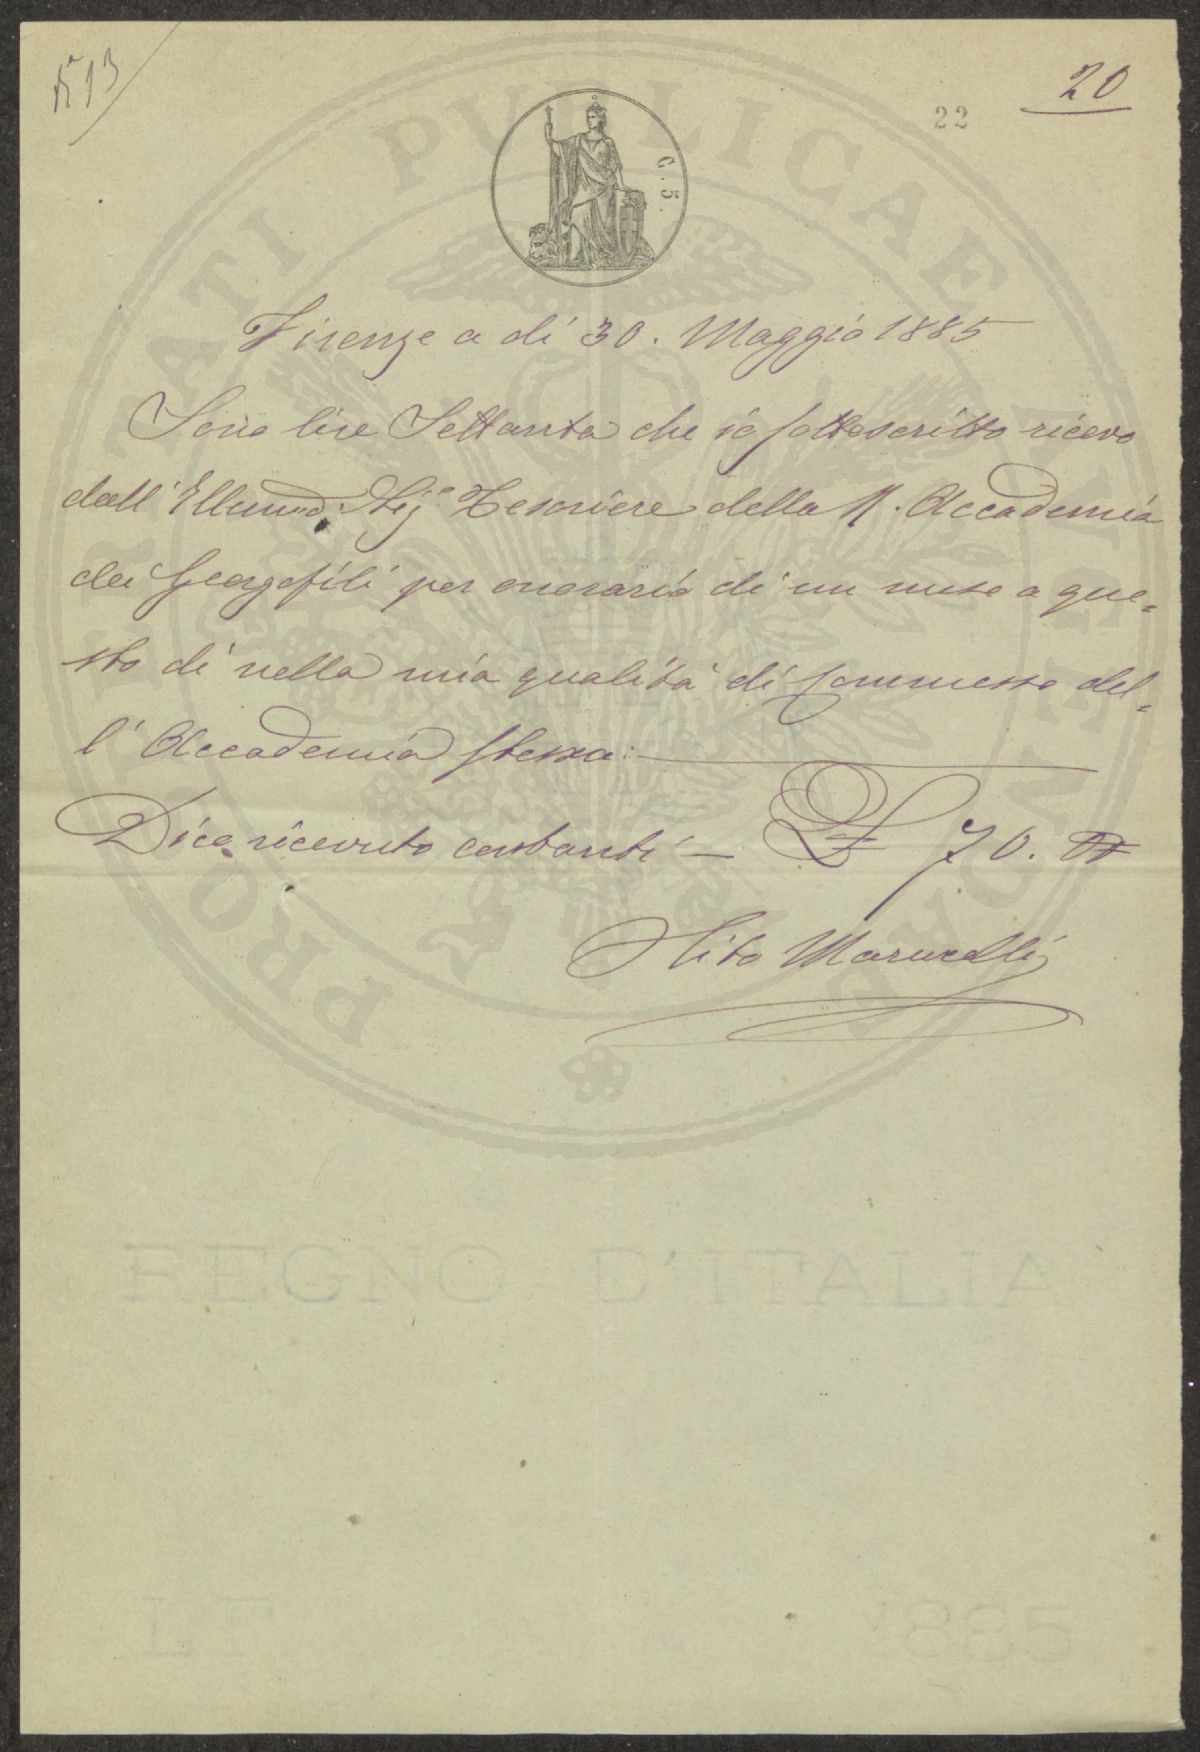 N° 13
20
22
C. 5.
PROBITATI PUBLICAE ANGENDAE
Firenze a dì 30. Maggio 1885
Sono lire Settanta che io sottoscritto ricevo
dall' Illmo Sig.e Tesoriere della R. Accademia
dei Georgofili per onorario di un mese a que=
sto dì nella mia qualità di Commesso del=
l' Accademia stessa
Dico ricevuto contanti — L 70.
Tito Marucelli
REGNO D'ITALIA
LF 1885